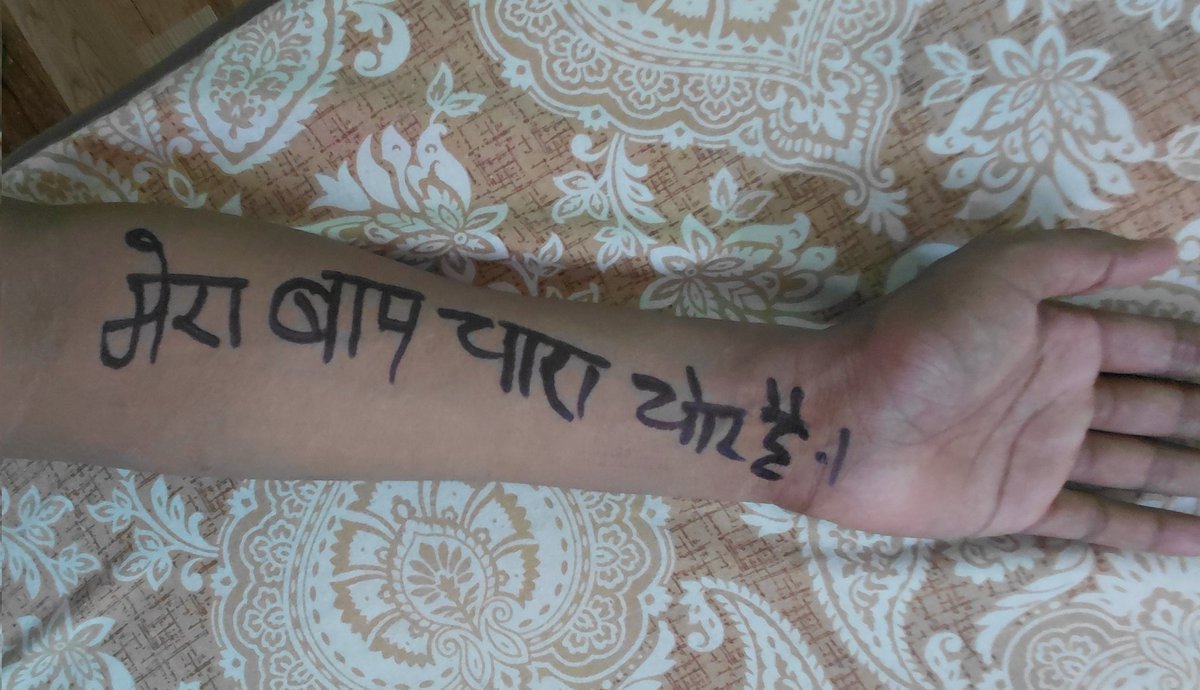 मेरा बाप चारा चोर है.।